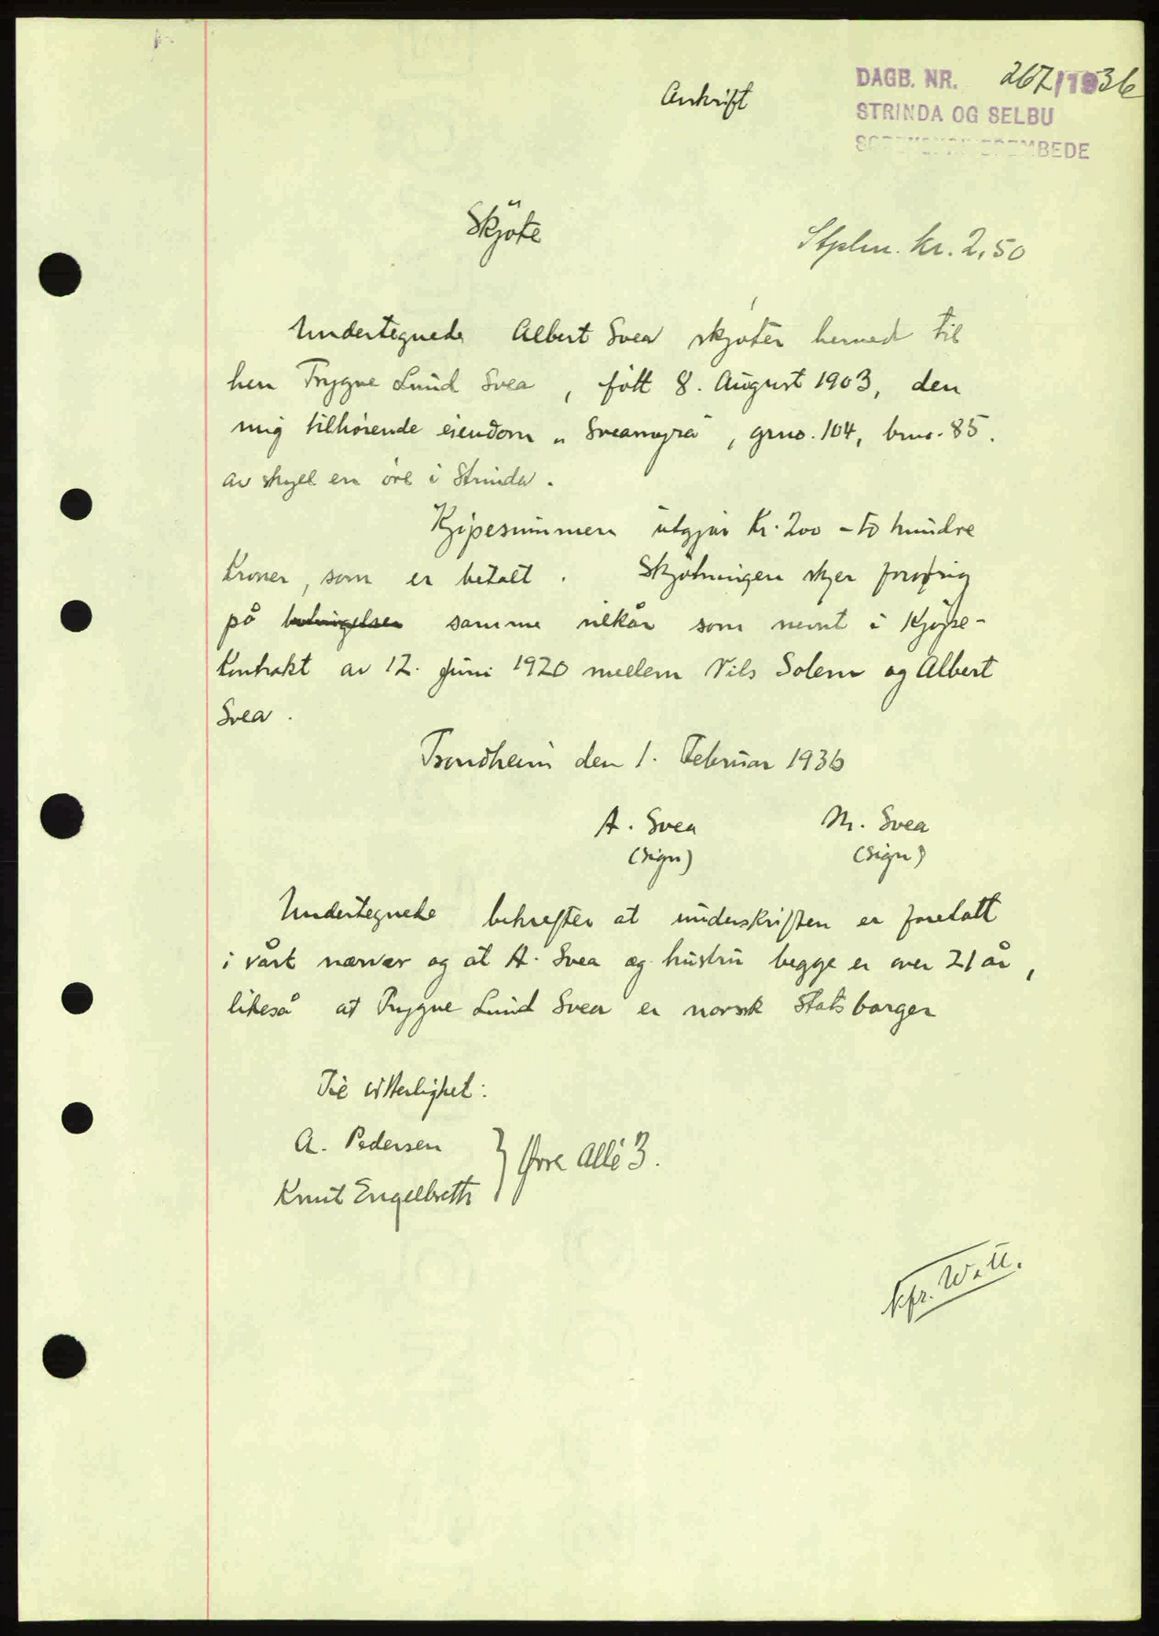 Avskrift
DAGB. NR. 267/1936
STRINDA OG SELBU
SORENSKRIVEREMBEDE
Skjøte
Stplm. kr. 2,50
Undertegnede Albert Svea skjøter herved til
herr Trygve Lund Svea, født 8. August 1903, den
mig tilhørende eiendom „Sveamyra", grno. 104, brno. 85.
av skyll en øre i Strinda.
Kjøpesummen utgjør Kr. 200 – to hundre
Kroner, som er betalt. Skjøtningen skjer forøvrig
på betingelser samme vilkår som nevnt i Kjøpe-
kontrakt av 12. Juni 1920 mellem Nils Solem og Albert
Svea.
Trondheim den 1. Februar 1936
A. Svea M. Svea
(sign) (sign)
Undertegnede bekrefter at underskriften er foretatt
i vårt nærvær og at A. Svea og hustru begge er over 21 år,
likeså at Trygve Lund Svea er norsk Statsborger
Til vitterlighet:
A. Pedersen
Knut Engelbreth } Øvre Allé 3.
kfr.